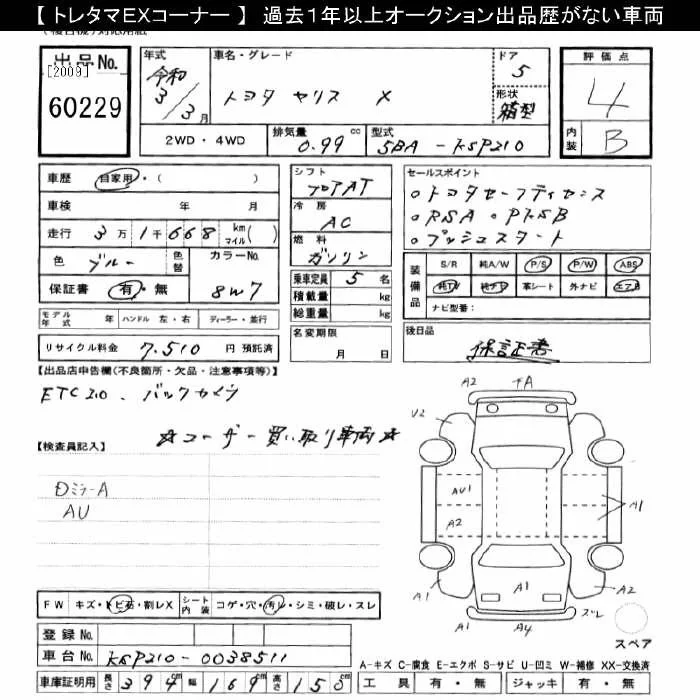 【 トレタマEXコーナー 】 過去1年以上オークション出品歴がない車両
出品No.
[2009]
60229
年式
令和
3/3月
車名・グレード
トヨタ ヤリス X
ドア
5
形状
箱型
評価点
4
内装
B
2WD・4WD
排気量
0.99 cc
型式
5BA - KSP210
車歴
自家用・( )
車検 年 月
走行 3万1千668 km マイル( )
色
ブルー
色替
カラーNo.
8W7
保証書 有・無
シフト
フロアAT
冷房
AC
燃料
ガソリン
乗車定員 5 名
積載量 kg
総重量 kg
セールスポイント
。トヨタセーフティセンス
。RSA 。PKSB
。プッシュスタート
装備品
S/R 純A/W P/S P/W ABS
純TV 純ナビ 革シート 外ナビ エアB
ナビ型番:
モデル年式 年 ハンドル 左・右 ディーラー・並行
リサイクル料金 7,510 円 預託済
名変期限
月 日
後日品
保証書
【出品店申告欄(不良箇所・欠品・注意事項等)】
ETC2.0 、バックカメラ
☆ユーザー買い取り車両☆
【検査員記入】
ミラーA
AU
A2
A
U2
AU1
A2
A1
A1
A1
A1
A4
A2
ズレ
スペア
FW キズ・トビ石・割レX シート内装 コゲ・穴・汚レ・シミ・破レ・スレ
登録No.
車台No. KSP210-0038511
車庫証明用 長さ 394cm 幅 169cm 高さ 150cm
A-キズ C-腐食 E-エクボ S-サビ U-凹ミ W-補修 XX-交換済
工具 有・無 ジャッキ 有・無